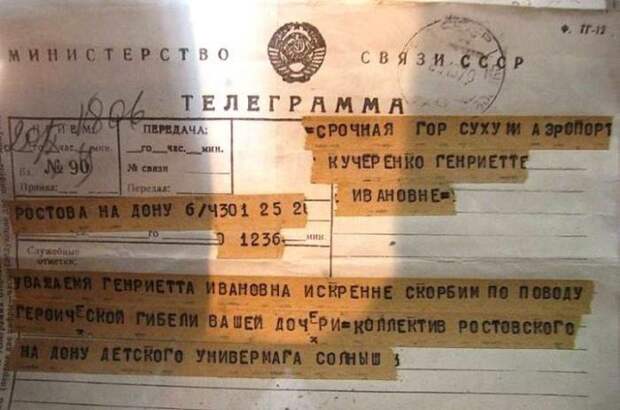 Ф. ТГ-12
МИНИСТЕРСТВО СВЯЗИ СССР
ТЕЛЕГРАММА
1896
ПЕРЕДАЧА:
го час. мин.
го час. мин.
Бл. № 90
№ связи
Принял: Передал:
=СРОЧНАЯ ГОР СУХУМИ АЭРОПОРТ
КУЧЕРЕНКО ГЕНРИЕТТЕ
ИВАНОВНЕ=
РОСТОВА НА ДОНУ 6/Ч301 25 2
го 0 1236 мин.
Служебные
отметки:
УВАЖАЕМЯ ГЕНРИЕТТА ИВАНОВНА ИСКРЕННЕ СКОРБИМ ПО ПОВОДУ
ГЕРОИЧЕСКОЙ ГИБЕЛИ ВАШЕЙ ДОЧЕРИ=КОЛЛЕКТИВ РОСТОВСКОГО
НА ДОНУ ДЕТСКОГО УНИВЕРМАГА СОЛНЫШ